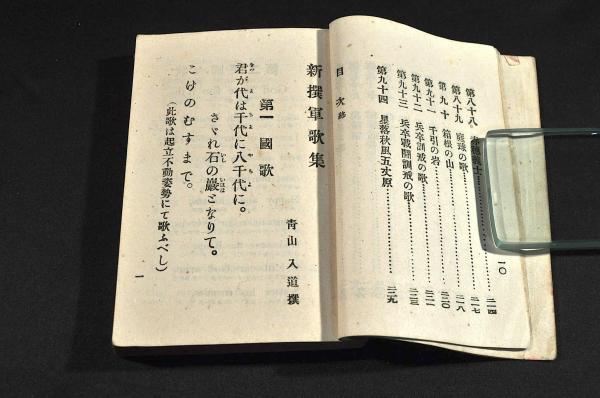 一〇
第八十八 義士………二一四
第八十九 球の歌………二一七
第九十 箱根の山………二一八
第九十一 千引の岩………二二〇
第九十二 兵卒訓戒の歌………二二一
第九十三 兵卒戰鬪訓戒の歌………二二三
第九十四 星落秋風五丈原………二二九
目次終
新撰軍歌集
青山入道撰
第一 國歌
君が代は千代に八千代に。
さゞれ石の巖となりて。
こけのむすまで。
(此歌は起立不動姿勢にて歌ふべし)
一